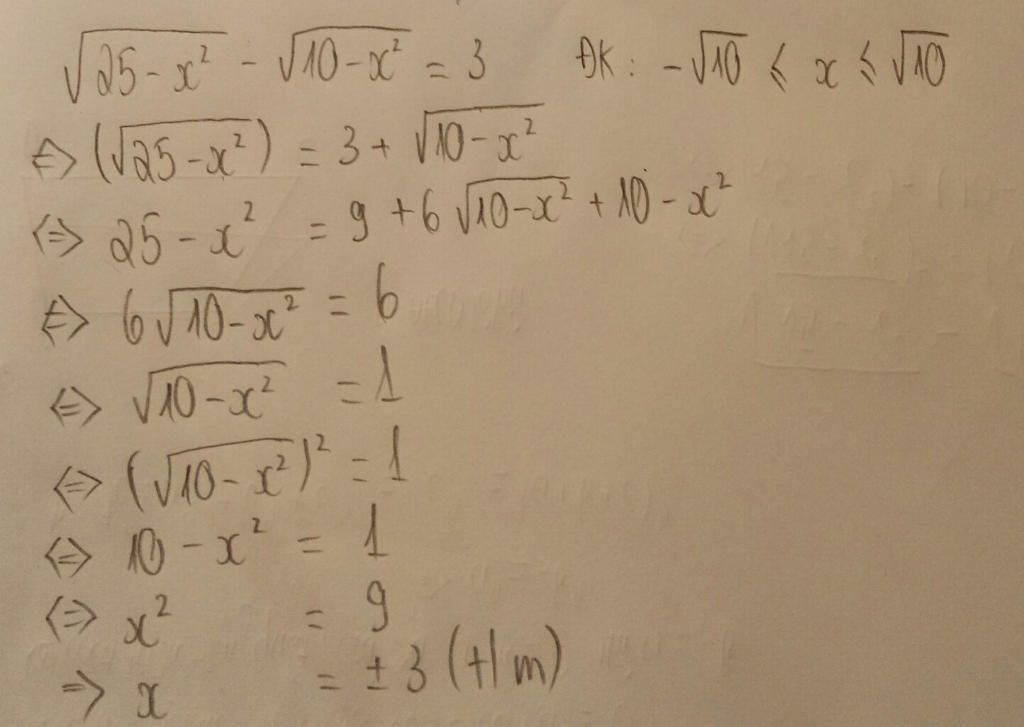 √(25 - x²) - √(10 - x²) = 3 ĐK: -√10 ≤ x ≤ √10
<=> (√(25 - x²)) = 3 + √(10 - x²)
<=> 25 - x² = 9 + 6√(10 - x²) + 10 - x²
<=> 6√(10 - x²) = 6
<=> √(10 - x²) = 1
<=> (√(10 - x²))² = 1
<=> 10 - x² = 1
<=> x² = 9
=> x = ±3 (t/m)